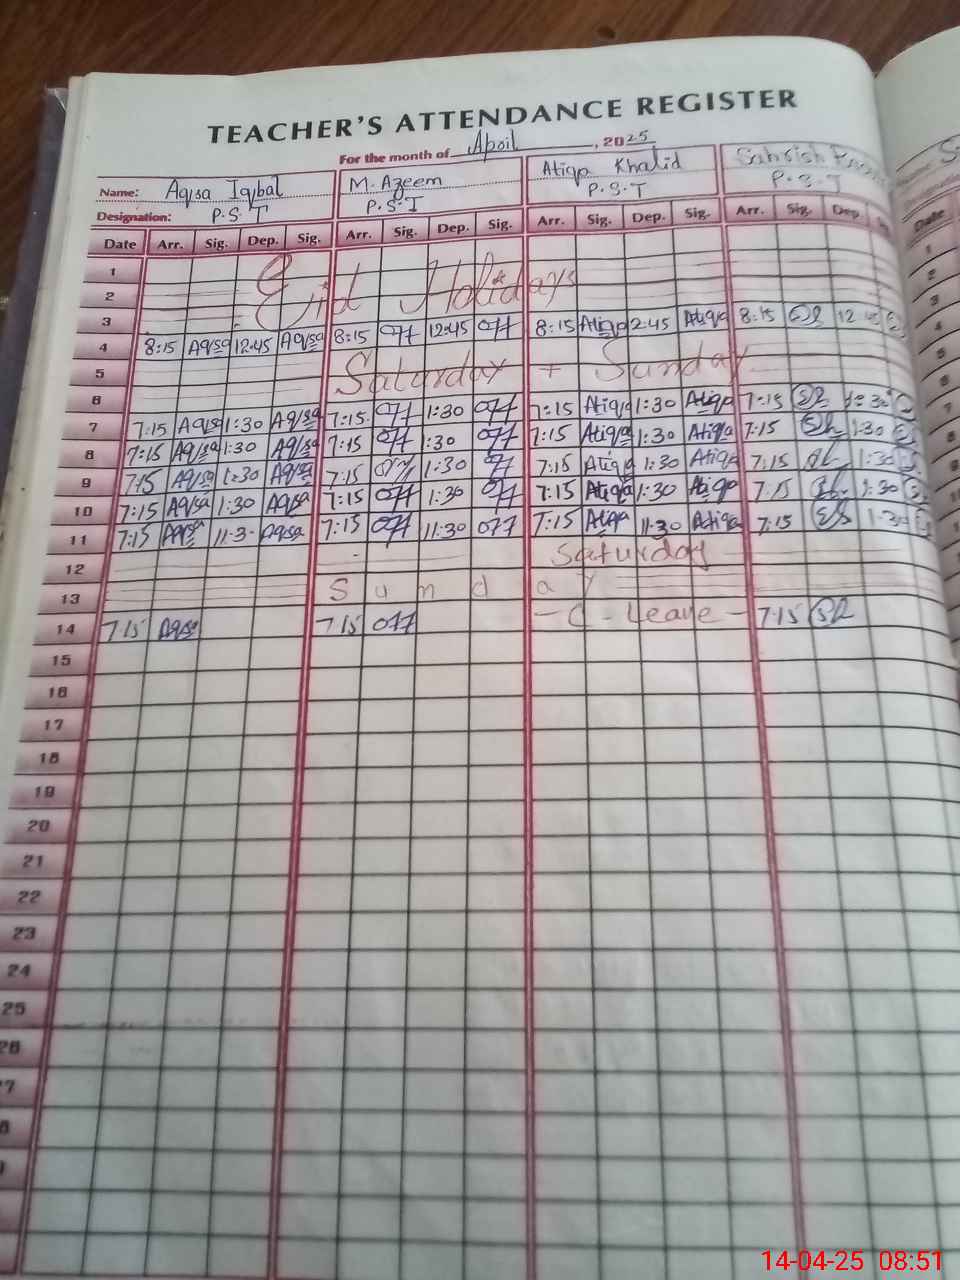 TEACHER'S ATTENDANCE REGISTER
For the month of April, 2025
Name: Aqsa Iqbal M. Azeem Atiqa Khalid Sahrish
Designation: P.S.T P.S.T P.S.T P.S.T
Date Arr. Sig. Dep. Sig. Arr. Sig. Dep. Sig. Arr. Sig. Dep. Sig. Arr. Sig. Dep.
1
2 Eid Holidays
3
4 8:15 Aqsa 12:45 Aqsa 8:15 12:45 8:15 Atiqa 2:45 Atiqa 8:15 12:45
5 Saturday + Sunday
6
7 7:15 Aqsa 1:30 Aqsa 7:15 1:30 7:15 Atiqa 1:30 Atiqa 7:15 1:30
8 7:15 Aqsa 1:30 Aqsa 7:15 1:30 7:15 Atiqa 1:30 Atiqa 7:15 1:30
9 7:15 Aqsa 1:30 Aqsa 7:15 1:30 7:15 Atiqa 1:30 Atiqa 7:15 1:30
10 7:15 Aqsa 1:30 Aqsa 7:15 1:30 7:15 Atiqa 1:30 Atiqa 7:15 1:30
11 7:15 Aqsa 11:3- Aqsa 7:15 11:30 7:15 Atiqa 11:30 Atiqa 7:15
12 Saturday
13 Sunday
14 7:15 Aqsa 7:15 - C - Leave - 7:15
15
16
17
18
19
20
21
22
23
24
25
26
Date
1
2
3
4
5
14-04-25 08:51